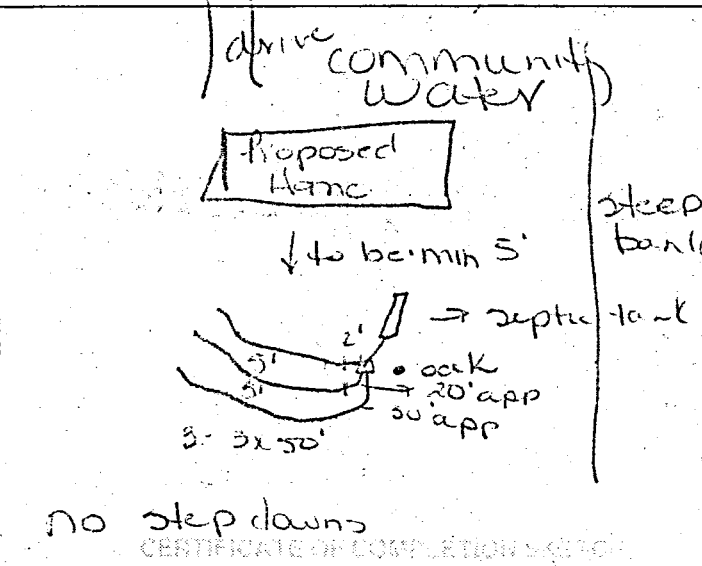 drive
community
water
Proposed
Home
to be min 5'
steep
bank
→ septic tank
2'
5'
• oak
5'
20' app
30' app
3- 3x50'
no step downs
CERTIFICATE OF COMPLETION SKETCH